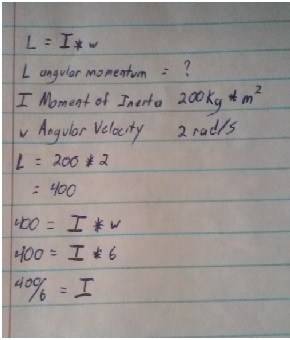 L = I * w
L angular momentum = ?
I Moment of Inertia 200 Kg * m²
w Angular Velocity 2 rad/s
L = 200 * 2
= 400
400 = I * w
400 = I * 6
400/6 = I